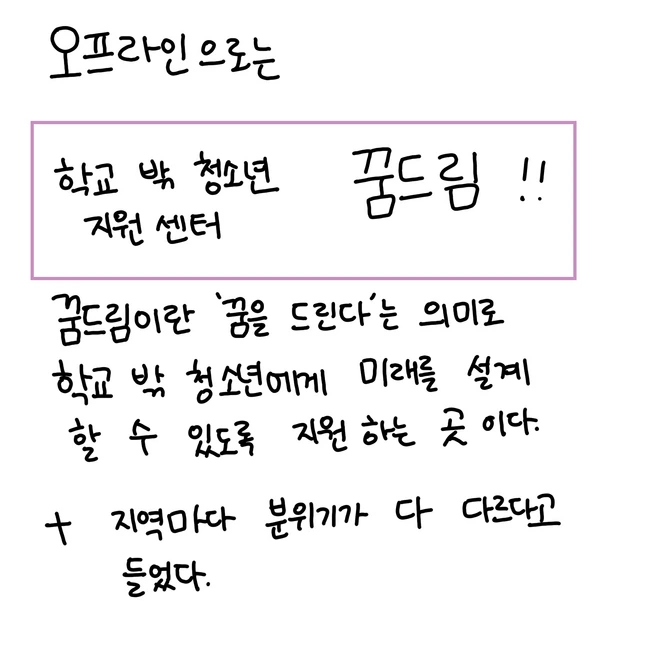 오프라인으로는
학교 밖 청소년 지원 센터
꿈드림 !!
꿈드림이란 '꿈을 드린다'는 의미로
학교 밖 청소년에게 미래를 설계
할 수 있도록 지원 하는 곳 이다.
+ 지역마다 분위기가 다 다르다고
들었다.